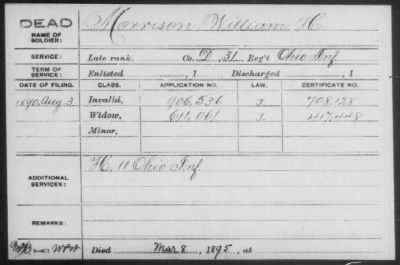 DEAD Morrison, William H.
NAME OF SOLDIER:
SERVICE: Late rank, Co. D, 31 Reg't Ohio Inf.
TERM OF SERVICE: Enlisted , 1 Discharged , 1
DATE OF FILING. CLASS. APPLICATION NO. LAW. CERTIFICATE NO.
1890, Aug. 3 Invalid, 906,536 J. 708,128
Widow, 611,061 J. 417,448
Minor,
ADDITIONAL SERVICES: H. 11 Ohio Inf.
REMARKS:
Died Mar 8, 1895, at